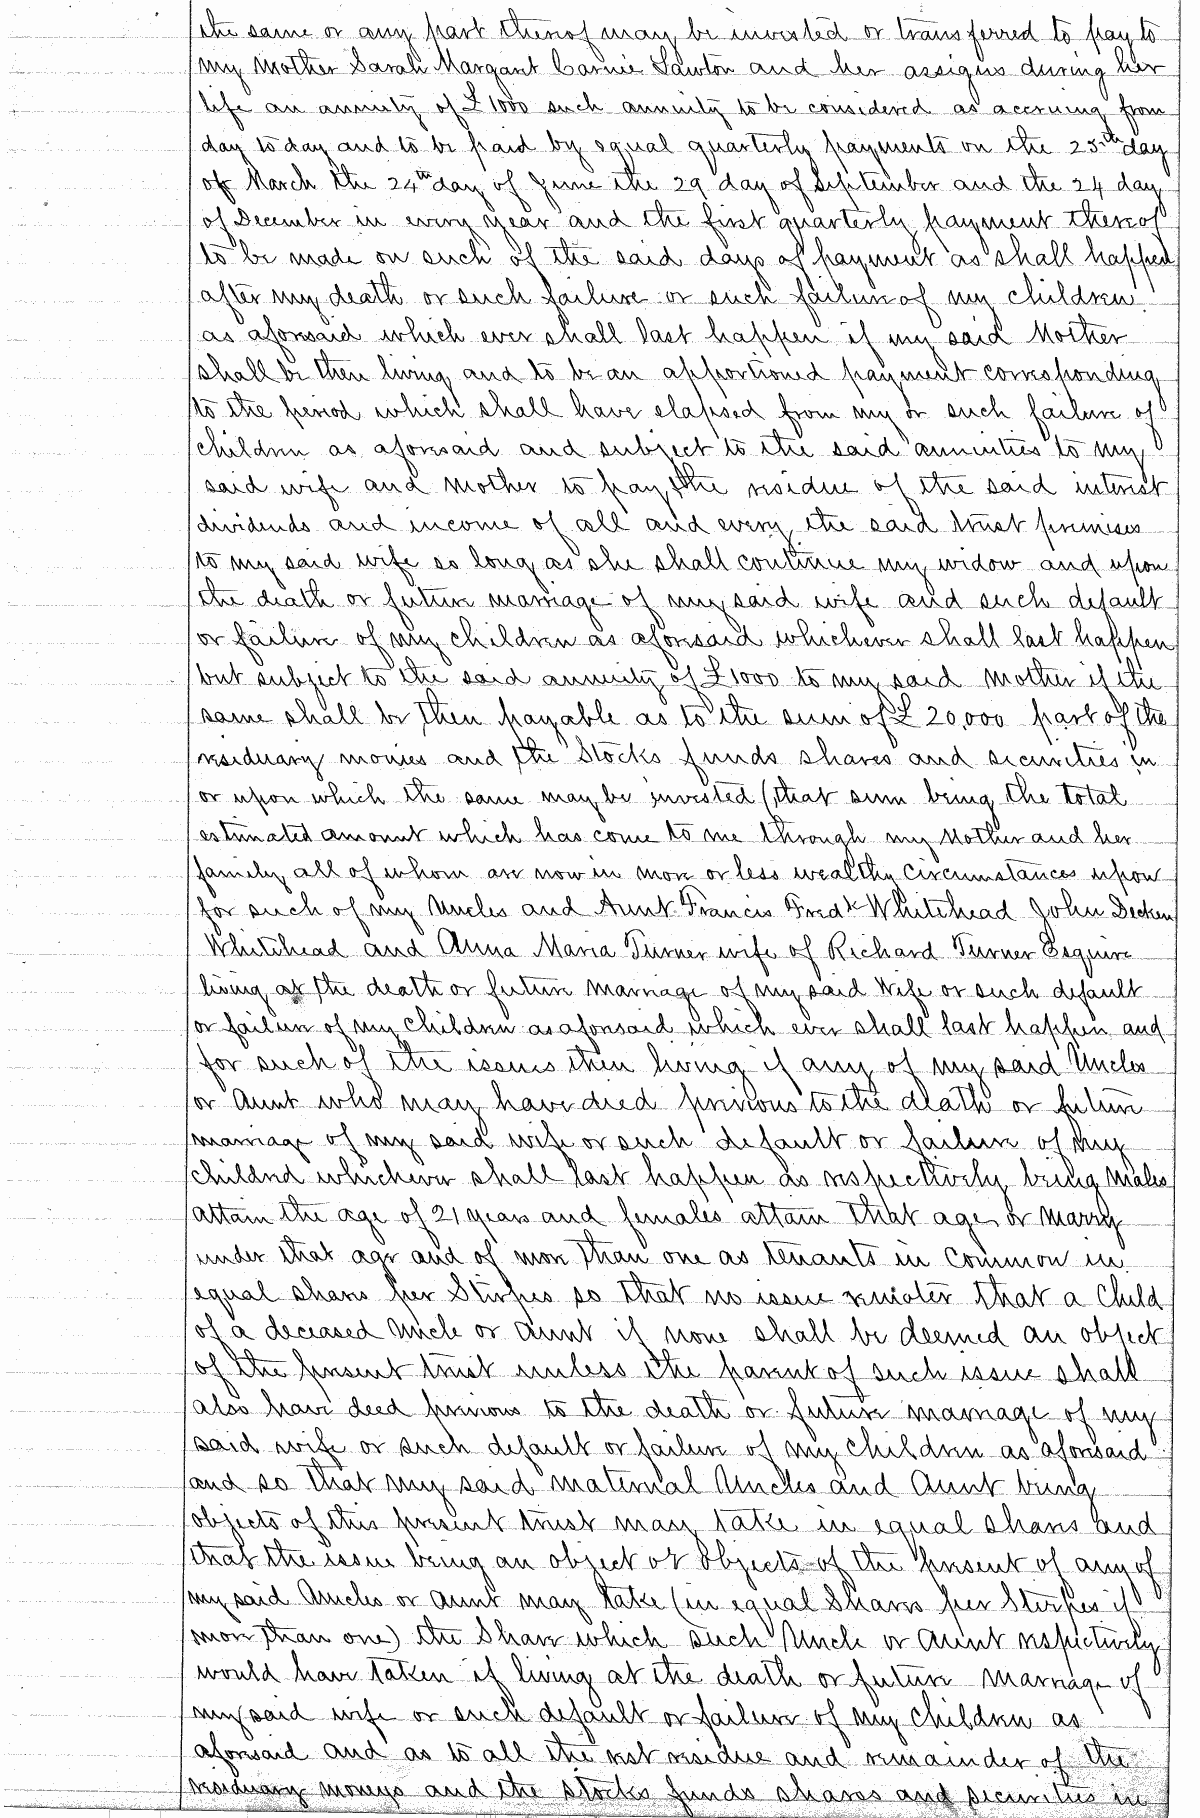 the same or any part thereof may be invested or transferred to pay to
my Mother Sarah Margaret Carnie Lawton and her assigns during her
life an annuity of £1000 such annuity to be considered as accruing from
day to day and to be paid by equal quarterly payments on the 25th day
of March the 24th day of June the 29 day of September and the 24 day
of December in every year and the first quarterly payment thereof
to be made on such of the said days of payment as shall happen
after my death or such failure or such failure of my children
as aforesaid which ever shall last happen if my said Mother
shall be then living and to be an apportioned payment corresponding
to the period which shall have elapsed from my or such failure of
children as aforesaid and subject to the said annuities to my
said wife and Mother to pay the residue of the said interest
dividends and income of all and every the said trust premises
to my said wife so long as she shall continue my widow and upon
the death or future marriage of my said wife and such default
or failure of my children as aforesaid whichever shall last happen
but subject to the said annuity of £1000 to my said Mother if the
same shall be then payable as to the sum of £20,000 part of the
residuary monies and the Stocks funds shares and securities in
or upon which the same may be invested (that sum being the total
estimated amount which has come to me through my Mother and her
family all of whom are now in more or less wealthy circumstances upon
for such of my Uncles and Aunt Francis Fredk Whitehead John Decken
Whitehead and Anna Maria Turner wife of Richard Turner Esquire
living at the death or future marriage of my said Wife or such default
or failure of my children as aforesaid which ever shall last happen and
for such of the issues then living if any of my said Uncles
or Aunt who may have died previous to the death or future
marriage of my said wife or such default or failure of my
childrd whichever shall last happen as respectively being Males
attain the age of 21 years and females attain that age or Marry
under that age and of more than one as tenants in common in
equal shares per Stirpes so that no issue remoter that a Child
of a deceased Uncle or Aunt if none shall be deemed an object
of the present trust unless the parent of such issue shall
also have deed previous to the death or future marriage of my
said wife or such default or failure of my children as aforesaid
and so that my said maternal Uncles and Aunt being
objects of this present trust may take in equal shares and
that the issue being an object or objects of the present of any of
my said Uncles or Aunt may take (in equal Shares per Stirpes if
more than one) the Share which such Uncle or Aunt respectively
would have taken if living at the death or future Marriage of
my said wife or such default or failure of my children as
aforesaid and as to all the rest residue and remainder of the
residuary moneys and the stocks funds shares and securities in